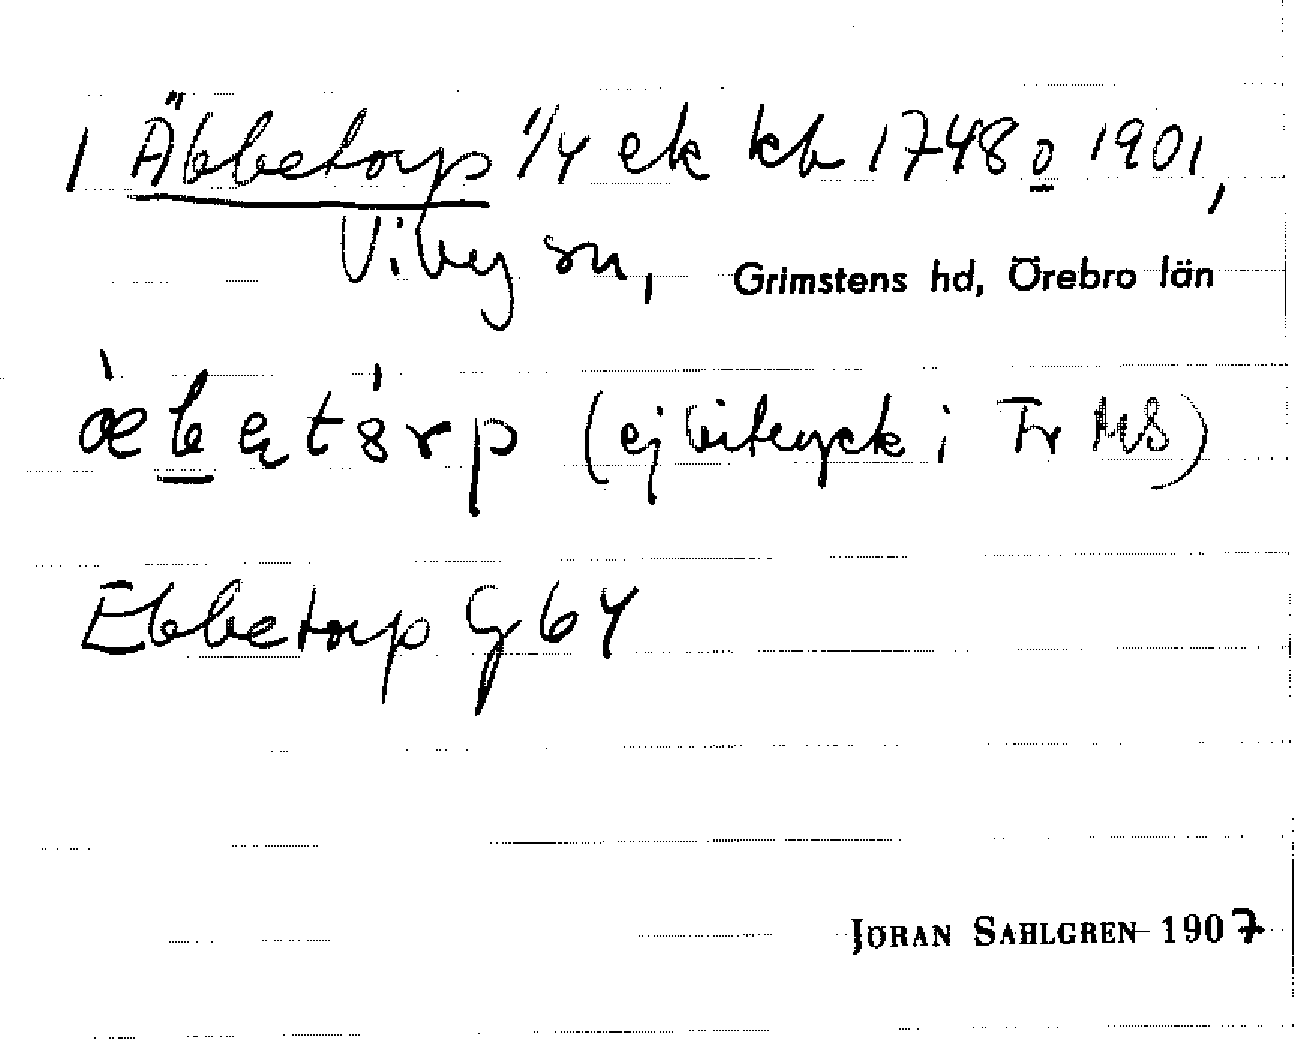 1 Äbbetorp 1/4 ek kb 1748 o 1901,
Viby sn, Grimstens hd, Örebro län
(ej i Fr MS)
Ebbetorp G 64
JÖRAN SAHLGREN 1907